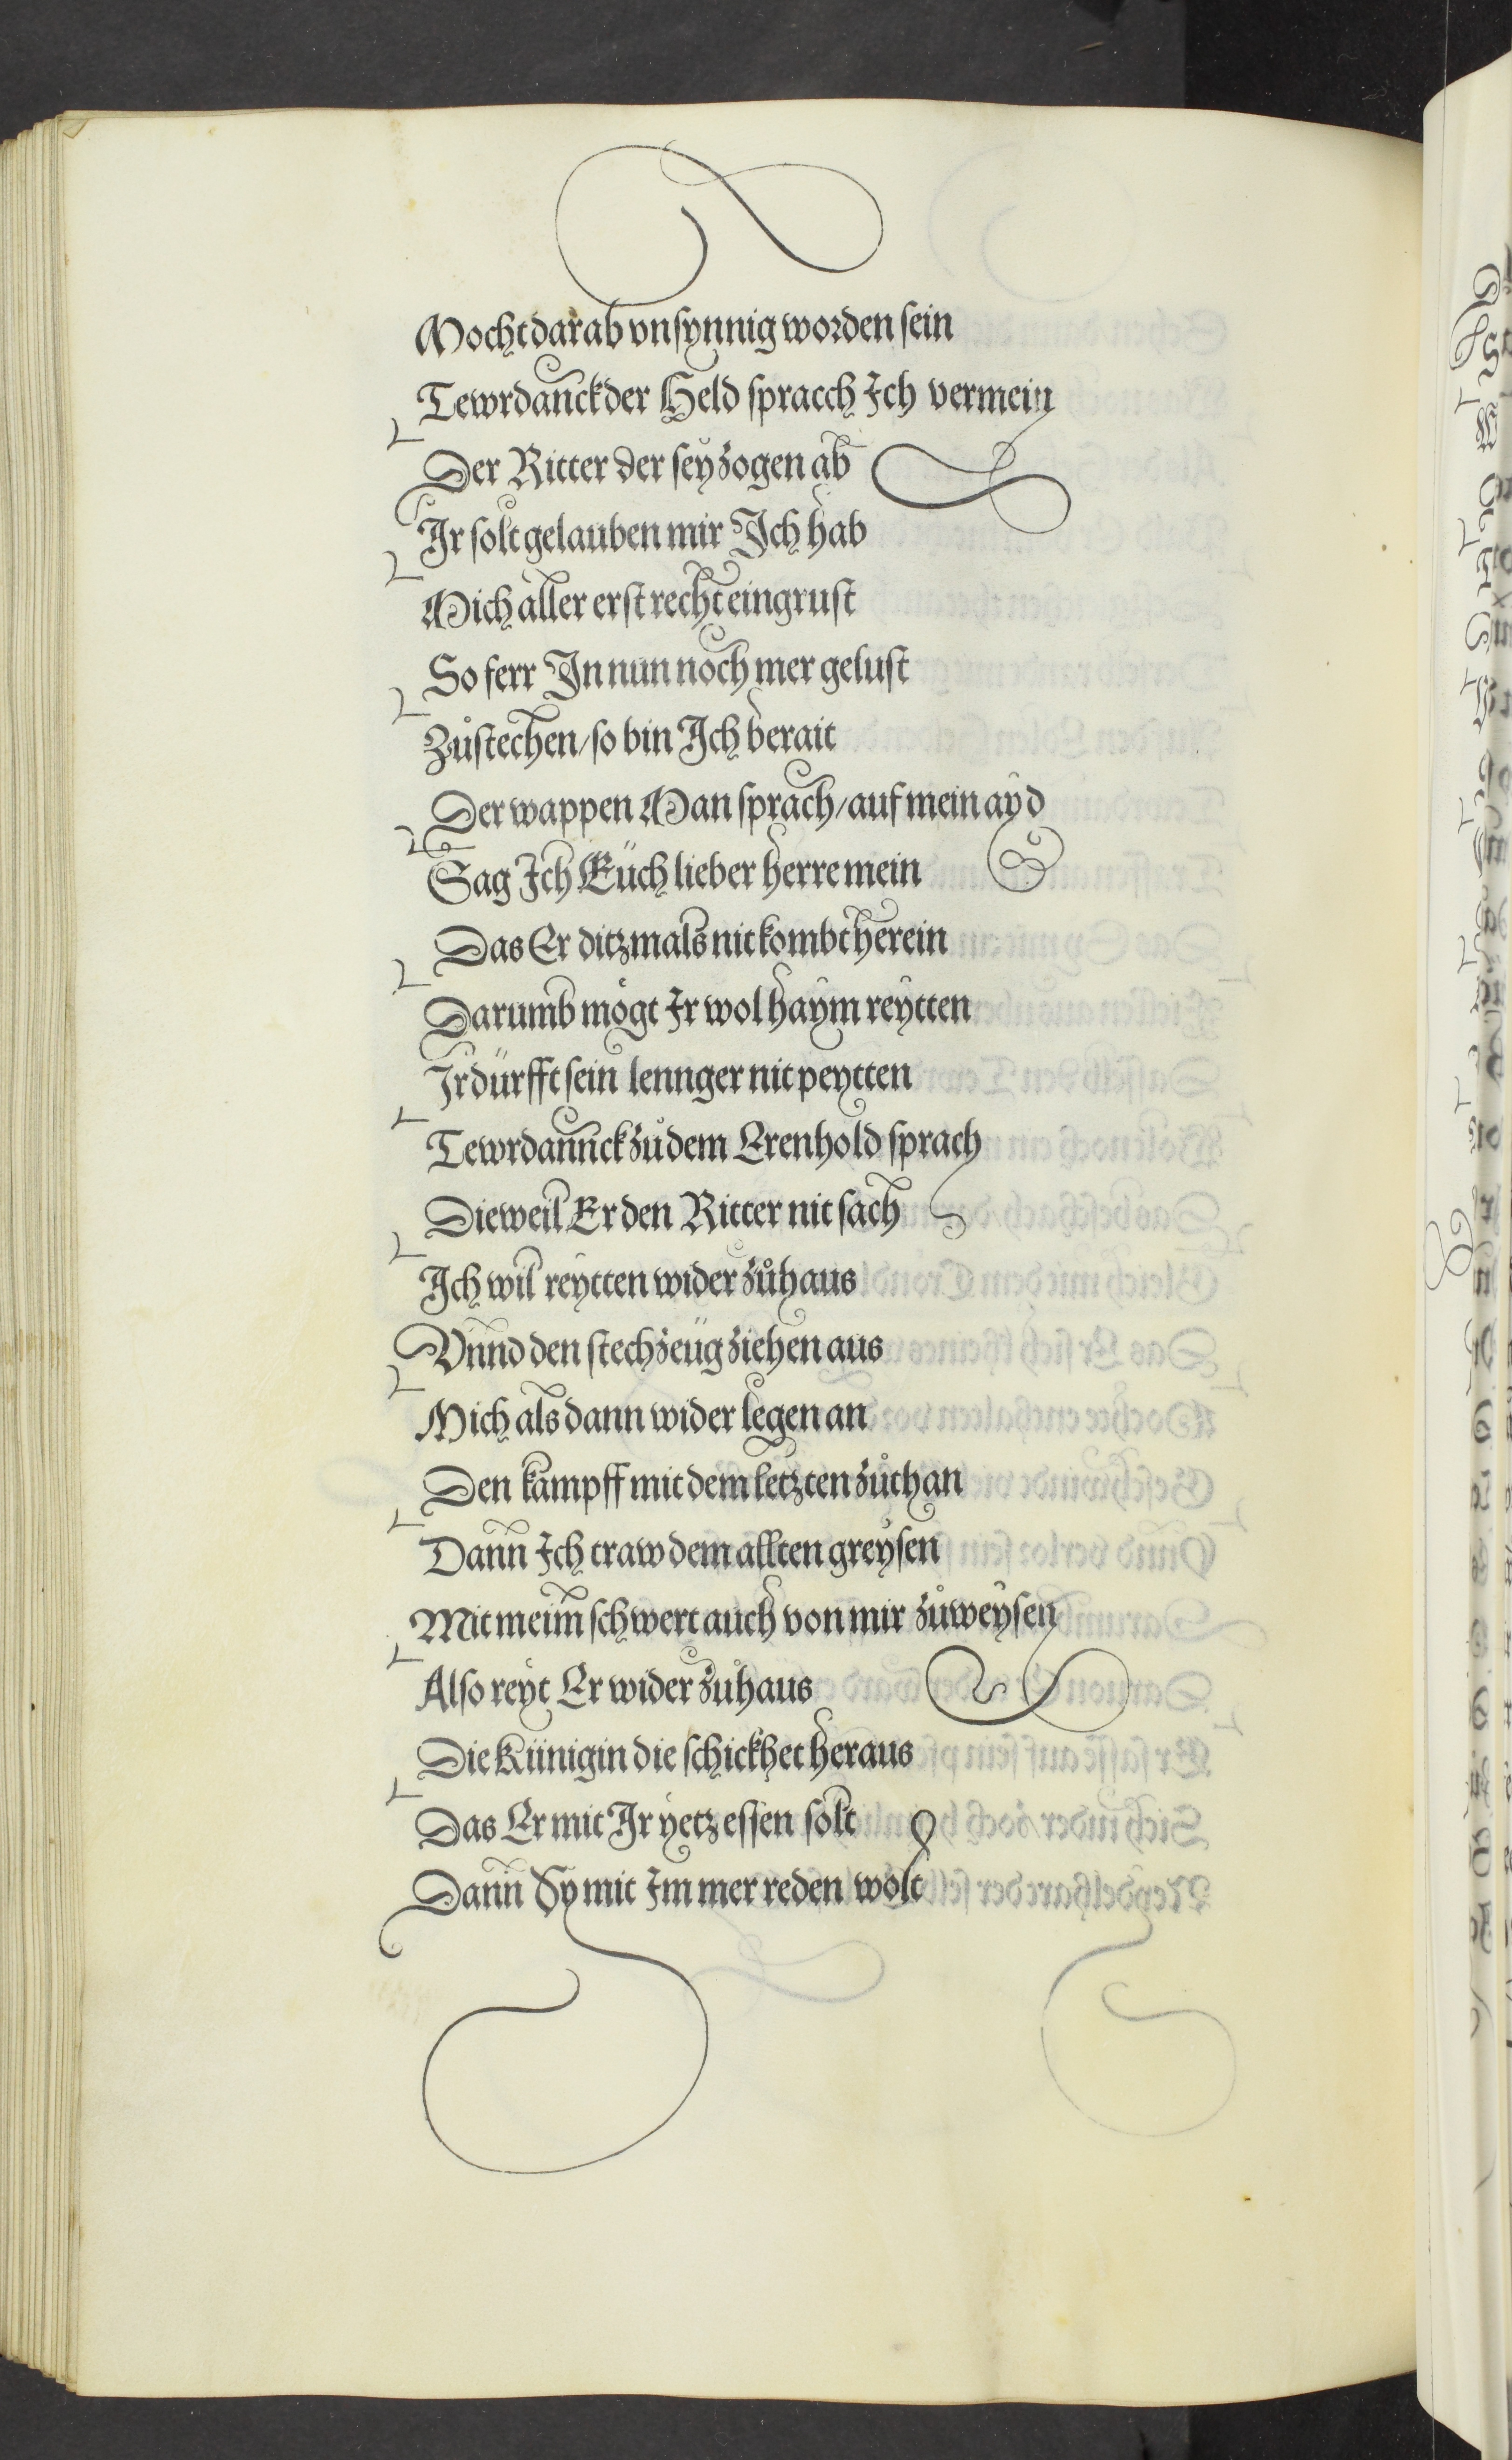 Mocht darab vnsynnig worden sein
Tewrdanck der Held spracch Ich vermein
Der Ritter der sey zogen ab
Ir solt gelauben mir Ich hab
Mich aller erst recht eingrust
So ferr In nun noch mer gelust
Zůstechen / so bin Ich berait
Der wappen Man sprach / auf mein ayd
Sag Ich Eüch lieber herre mein
Das Er ditzmals nit kombt herein
Darumb mögt Ir wol haym reytten
Ir dürfft sein lennger nit peytten
Tewrdannck zů dem Erenhold sprach
Dieweil Er den Ritter nit sach
Ich wil reytten wider zůhaus
Vnnd den stechzeüg ziehen aus
Mich als dann wider legen an
Den kampff mit dem letzten zůthan
Dann Ich traw dem allten greysen
Mit meim schwert auch von mir zůweysen
Also reyt Er wider zůhaus
Die Künigin die schickhet heraus
Das Er mit Ir yetz essen solt
Dann Sy mit Im mer reden wolt